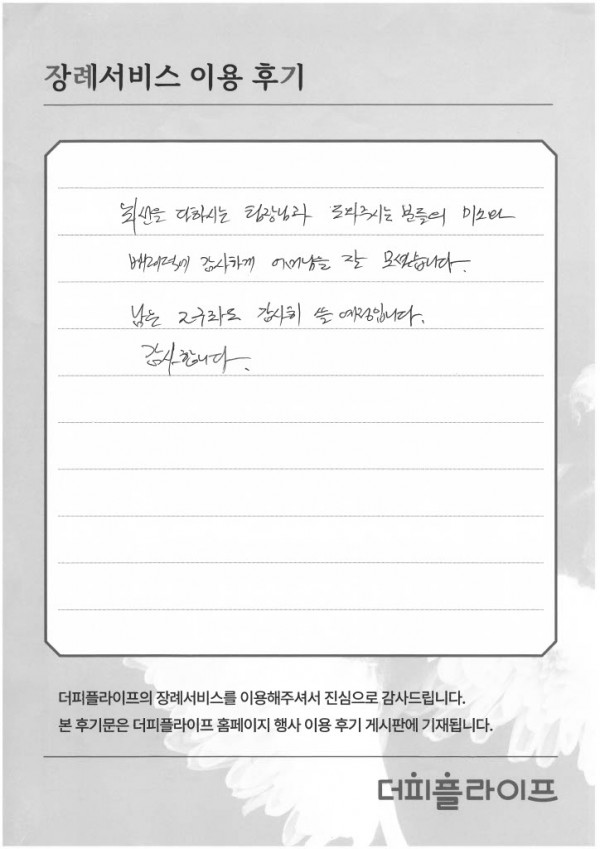 장례서비스 이용 후기
최선을 다하시는 팀장님과 도와주시는 분들의 미소와
배려덕에 감사하게 어머님을 잘 모셨습니다.
남은 2구좌도 감사히 쓸 예정입니다.
감사합니다.
더피플라이프의 장례서비스를 이용해주셔서 진심으로 감사드립니다.
본 후기문은 더피플라이프 홈페이지 행사 이용 후기 게시판에 기재됩니다.
더피플라이프